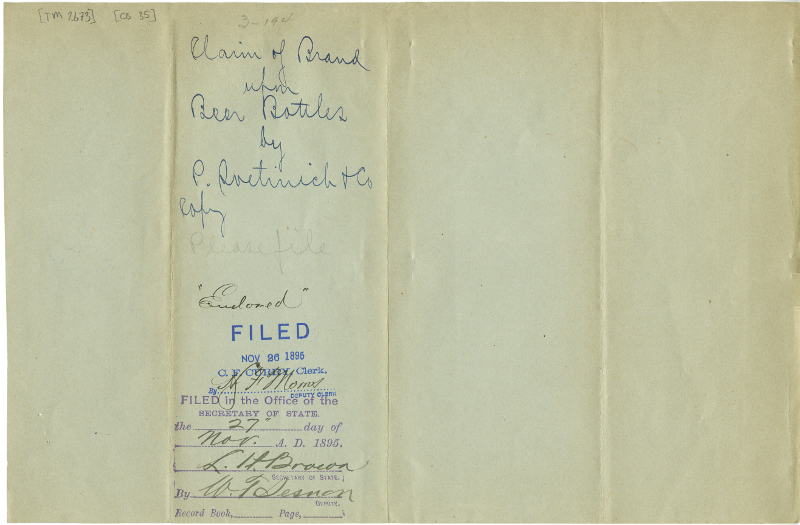 [TM 2673] [CB 35]
3-194
Claim of Brand
upon
Beer Bottles
by
P. Svetinich & Co
Copy
Please file
"Endorsed"
FILED
NOV 26 1895
C. F. CURRY, Clerk.
By H F Morris
DEPUTY CLERK
FILED in the Office of the
SECRETARY OF STATE.
the 27" day of
Nov. A. D. 1895.
L. H. Brown
SECRETARY OF STATE.
By W. T. Sesnon
DEPUTY.
Record Book, Page,